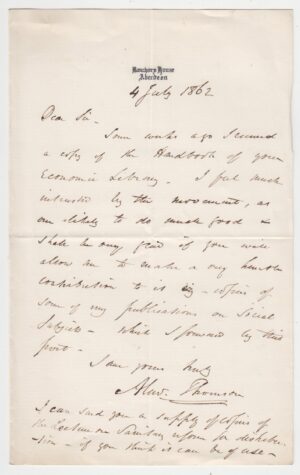 Banchory House
Aberdeen
4 July 1862
Dear Sir -
Some weeks ago I received
a copy of the Handbook of your
Economic Library. I feel much
interested by the movement, as
one likely to do much good &
shall be very glad if you will
allow me to make a very humble
contribution to it by - copies of
some of my publications on Social
Subjects - which I forward by this
post -
I am yours truly
Alexr. Thomson
I can send you a supply of copies of
the Lecture on Sanitary reform for distribu
-tion - if you think it can be of use -